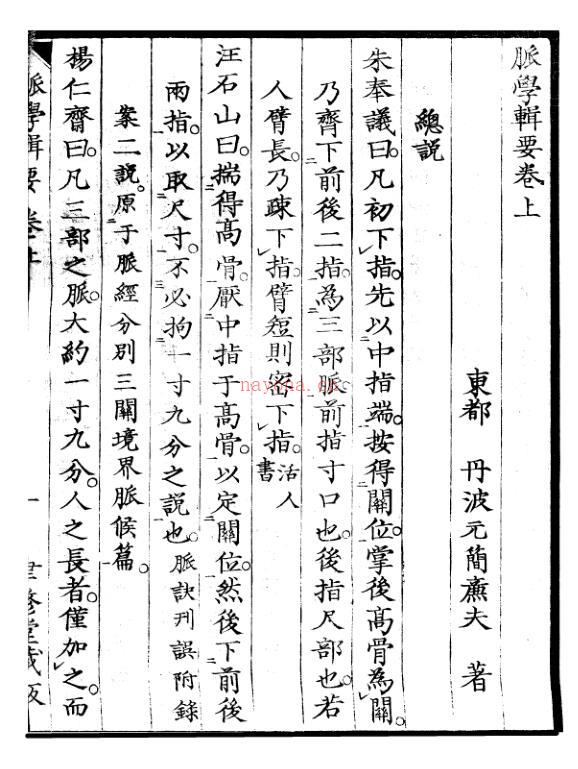 脈學輯要卷上
東都 丹波元簡廉夫 著
總説
朱奉議曰。凡初下指。先以中指端。按得關位。掌後髙骨為關。
乃齊下前後二指。為三部脈。前指寸口也。後指尺部也。若
人臂長。乃疎下指。臂短則密下指。活人書
汪石山曰。揣得髙骨。厭中指于髙骨。以定關位。然後下前後
兩指。以取尺寸。不必拘一寸九分之説也。脈訣刋誤附錄
案二説。原于脈經分別三關境界脈候篇。
楊仁齋曰。凡三部之脈。大約一寸九分。人之長者。僅加之。而
脈學輯要 卷上
一
聿修堂藏版